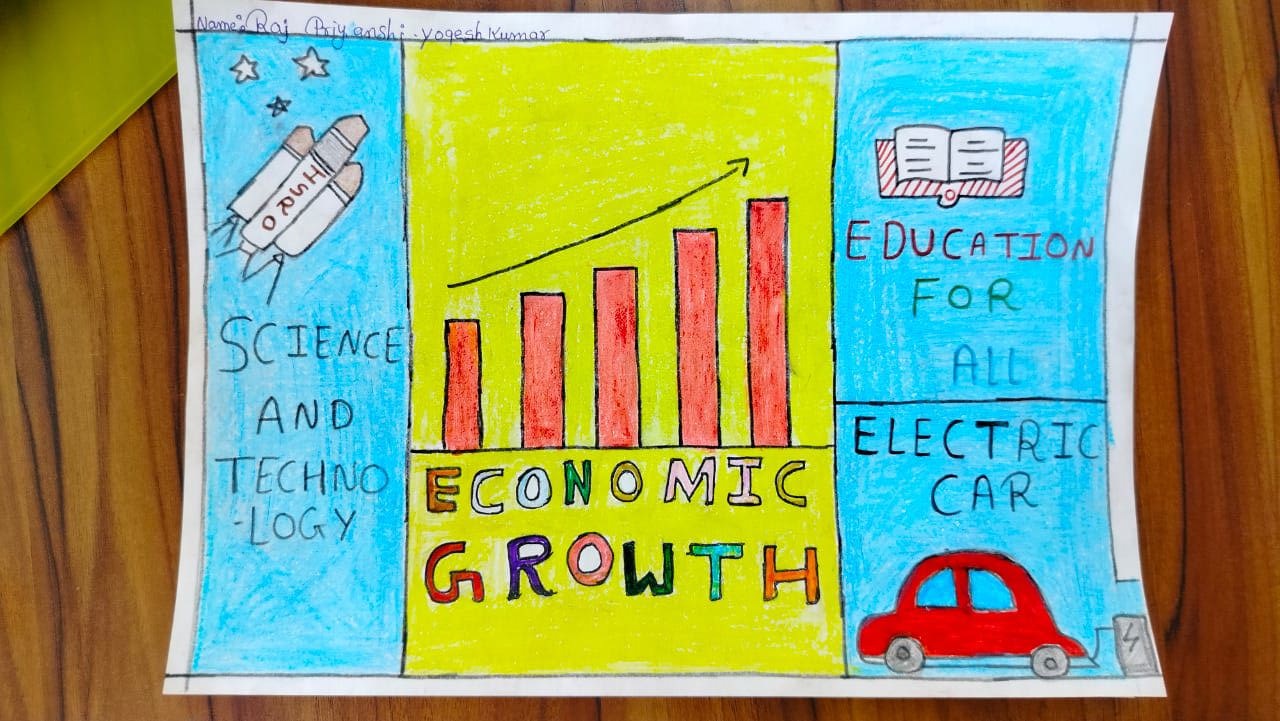 Name: Raj Priyanshi Yogesh Kumar
HSRO
SCIENCE
AND
TECHNO
-LOGY
ECONOMIC
GROWTH
EDUCATION
FOR
ALL
ELECTRIC
CAR